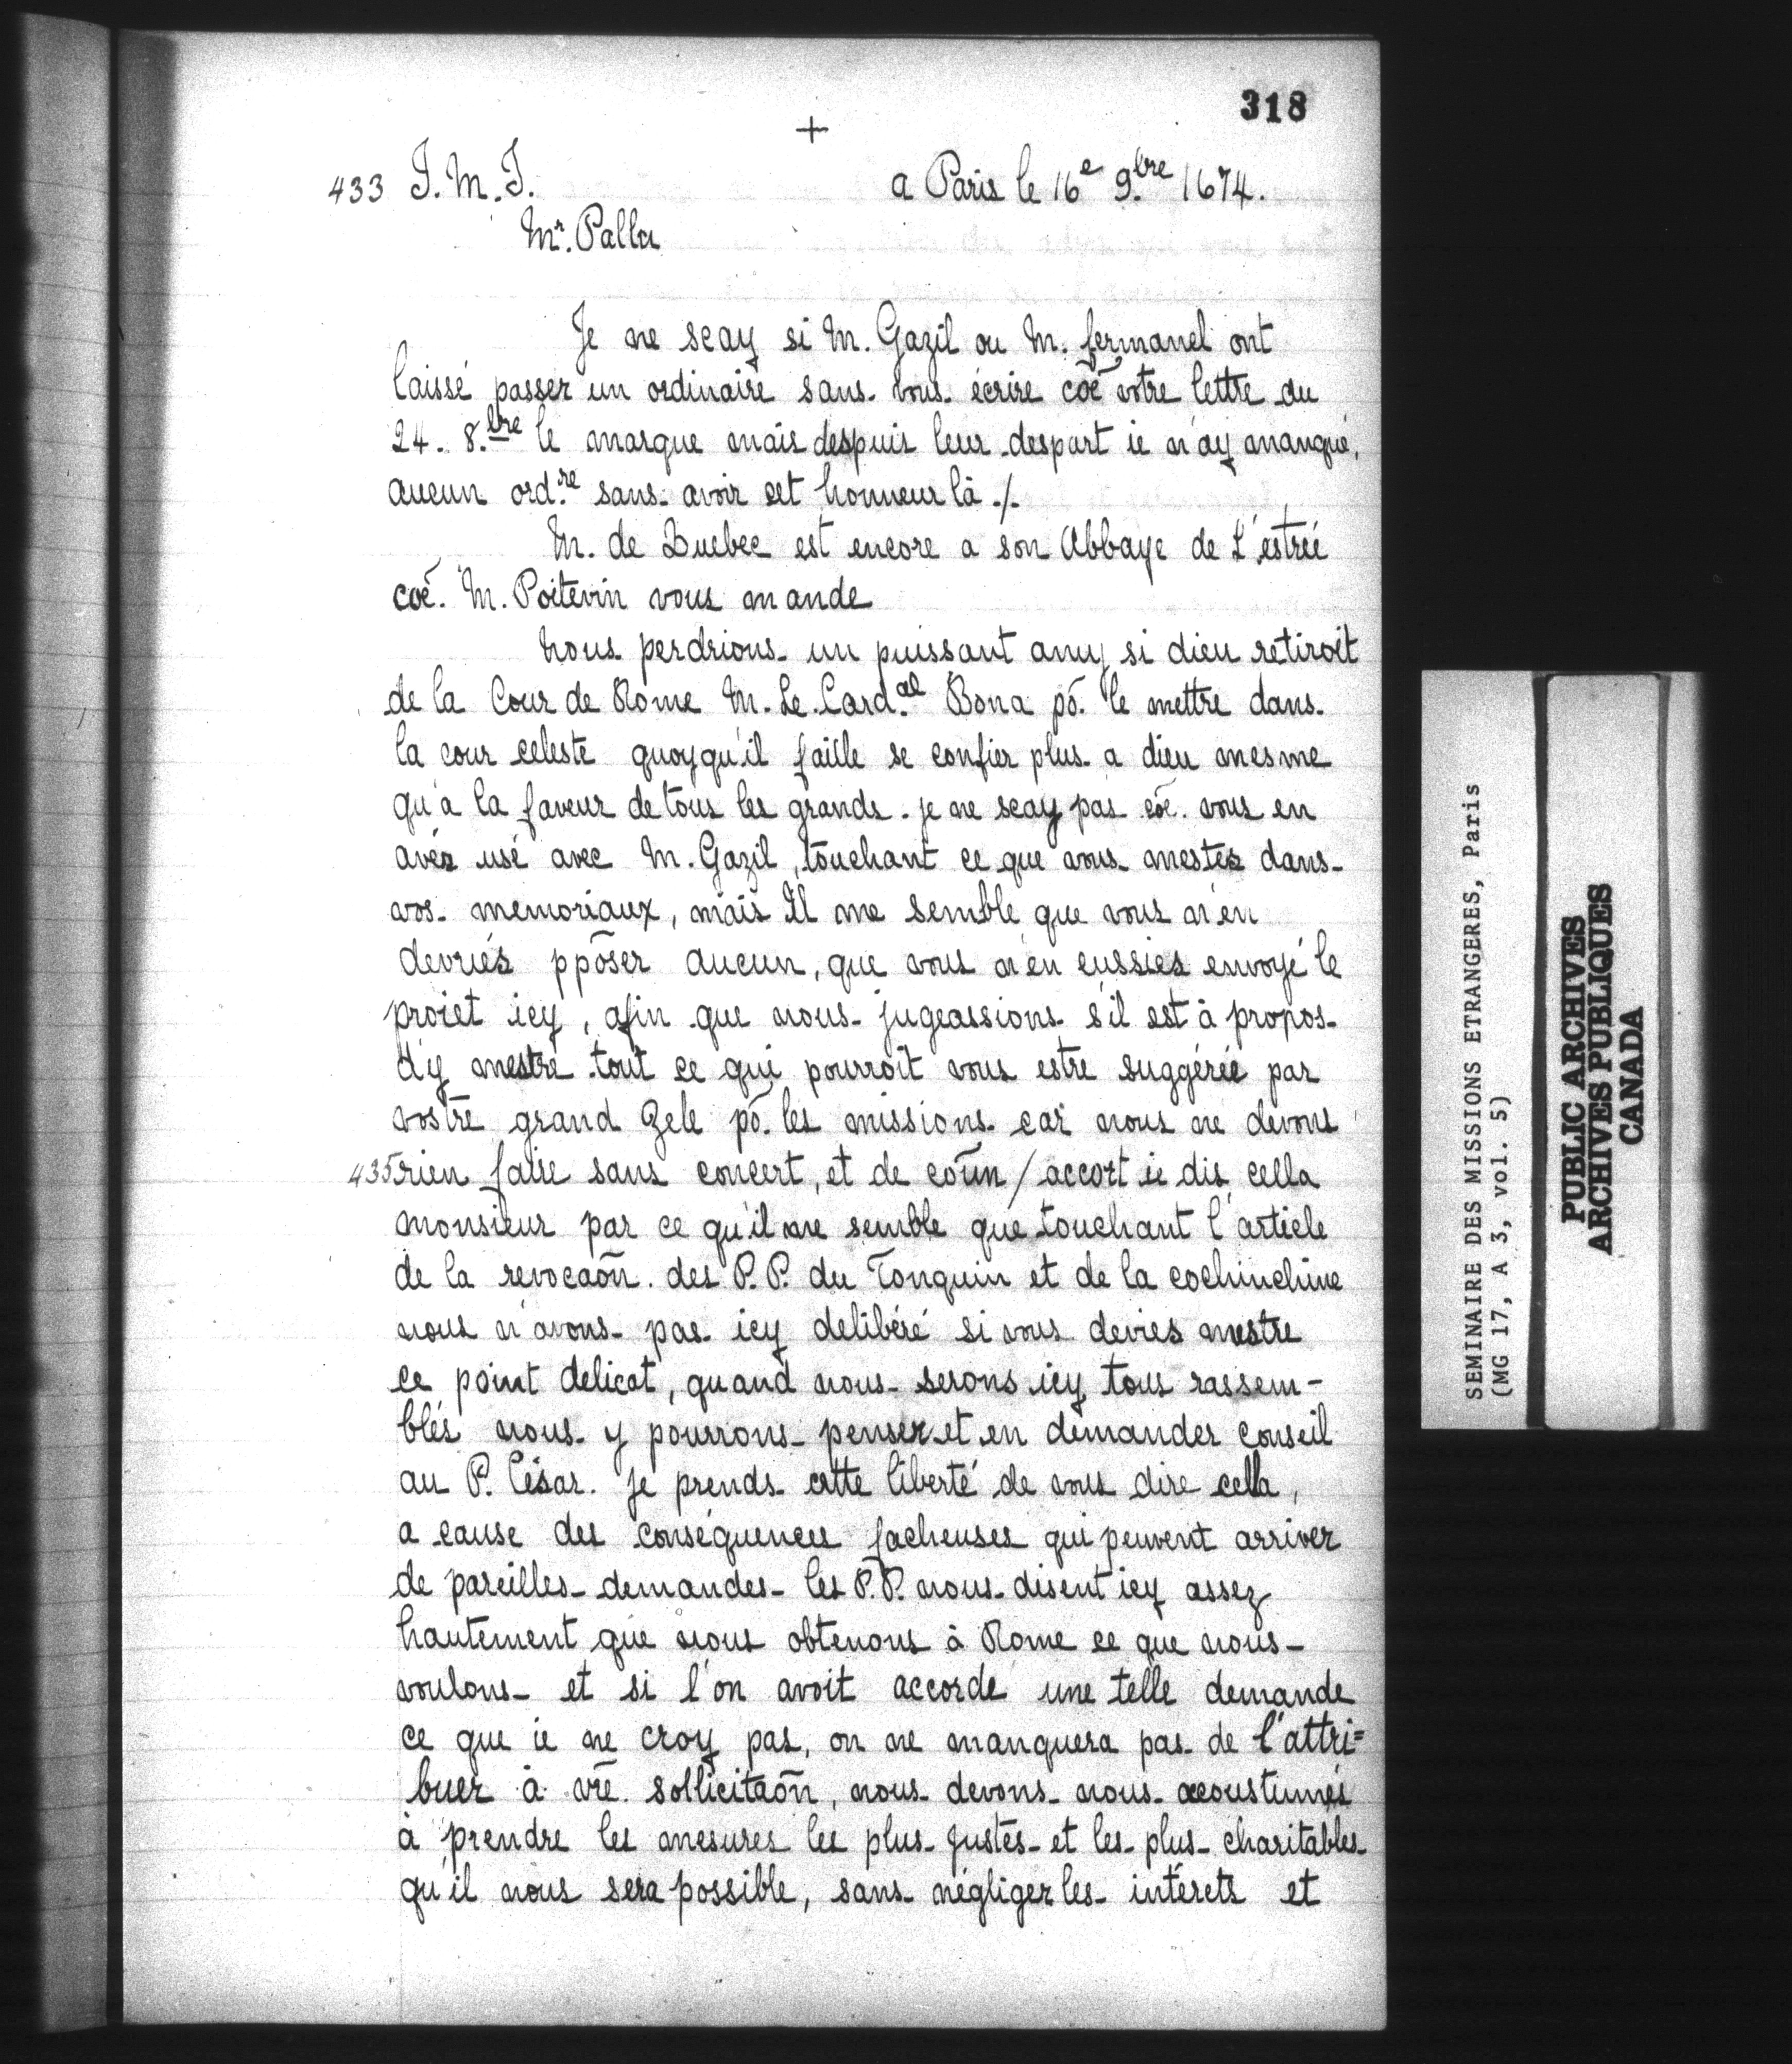 318
+
433 J. M. J. a Paris le 16e 9.bre 1674.
Mr. Pallu
Je ne scay si M. Gazil ou M. fermanel ont
laissé passer un ordinaire sans vous écrire cōe votre lettre du
24. 8.bre le marque mais despuis leur despart ie n'ay manqué,
aucun ord.re sans avoir cet honneur là ./.
M. de Quebec est encore a son Abbaye de L'estrée
coē. M. Poitevin vous mande
Nous perdrions un puissant amy si dieu retiroit
de la Cour de Rome M. Le Card.al Bona pō. le mettre dans
la cour celeste quoyqu'il faille se confier plus a dieu mesme
qu'a la faveur de tous les grands. je ne scay pas cōe. vous en
avés usé avec M. Gazil, touchant ce que vous mestes dans
vos memoriaux, mais Il me semble que vous n'en
devriés ppōser aucun, que vous n'en eussiés envoyé le
proiet icy, afin que nous jugeassions s'il est à propos
d'y mestre tout ce qui pourroit vous estre suggérée par
vostre grand Zele pō. les missions car nous ne devons
435 rien faire sans concert, et de coūn / accort ie dis cella
monsieur par ce qu'il me semble que touchant l'article
de la revocaōn. des P.P. du Tonquin et de la cochinchine
nous n'avons pas icy delibéré si vous devies mestre
ce point delicat, quand nous serons icy tous rassem-
blés nous y pourrons penser et en demander conseil
au P. César. je prends cette liberté de vous dire cella,
a cause des conséquences facheuses qui peuvent arriver
de pareilles demandes les P.P. nous disent icy assez
hautement que nous obtenons à Rome ce que nous
voulons et si l'on avoit accordé une telle demande
ce que ie ne croy pas, on ne manquera pas de l'attri=
buer à vrē. sollicitaōn, nous devons nous acoustumés
à prendre les mesures les plus justes et les plus charitables
qu'il nous sera possible, sans négliger les intérets et
SEMINAIRE DES MISSIONS ETRANGERES, Paris
(MG 17, A 3, vol. 5)
PUBLIC ARCHIVES
ARCHIVES PUBLIQUES
CANADA